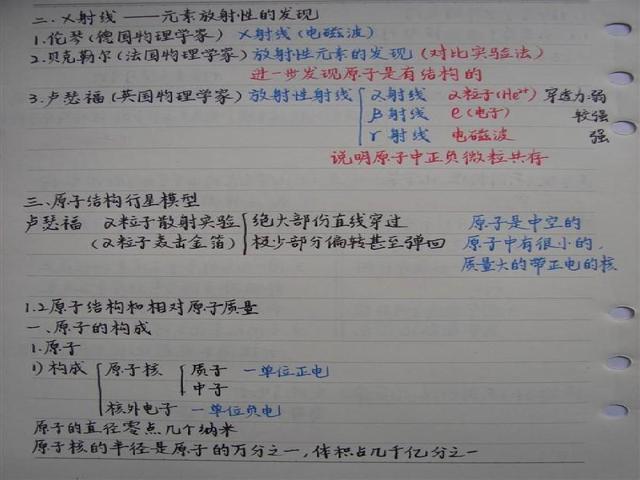 二. X射线 ——元素放射性的发现
1.伦琴(德国物理学家) X射线(电磁波)
2.贝克勒尔(法国物理学家) 放射性元素的发现 (对比实验法)
进一步发现原子是有结构的
3.卢瑟福(英国物理学家) 放射性射线 α射线 α粒子(He²⁺) 穿透力:弱
β射线 e(电子) 较强
γ射线 电磁波 强
说明原子中正负微粒共存
三.原子结构行星模型
卢瑟福 α粒子散射实验 绝大部份直线穿过 原子是中空的
(α粒子轰击金箔) 极少部分偏转甚至弹回 原子中有很小的,
质量大的带正电的核
1.2原子结构和相对原子质量
一、原子的构成
1.原子
1)构成 原子核 质子 一单位正电
中子
核外电子 一单位负电
原子的直径零点几个纳米
原子核的半径是原子的万分之一,体积占几千亿分之一